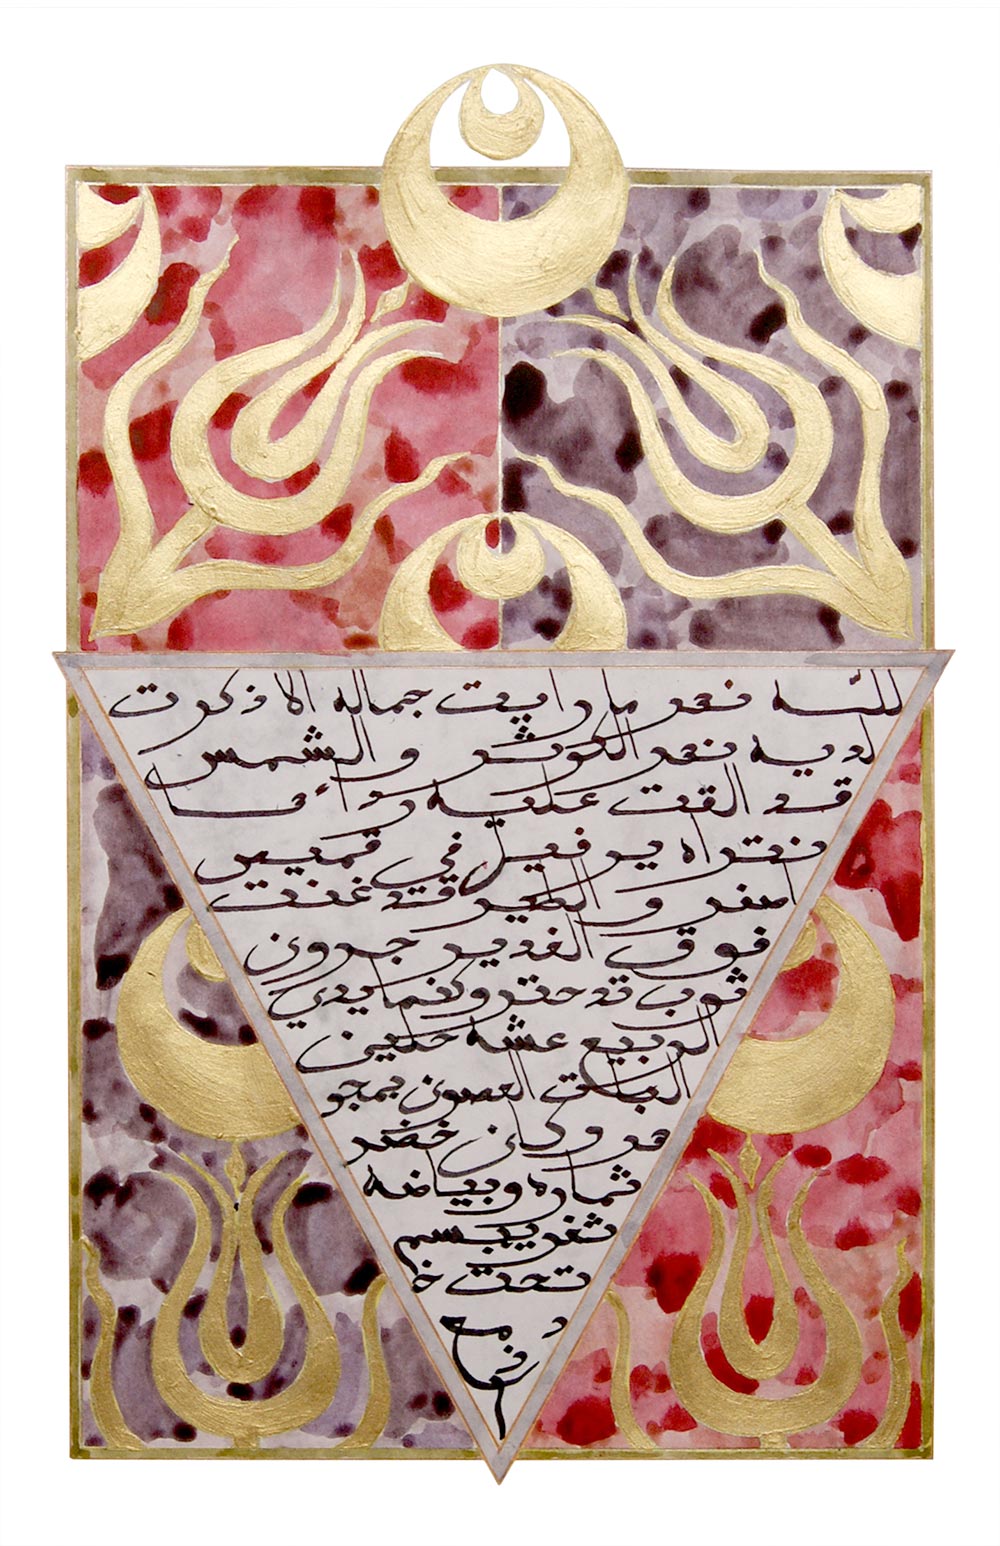 لله نهر ما رايت جماله الا ذكرت
لديه نهر الكوثر والشمس
قد القت عليه رداءها
فتراه يرفل في قميص
اصفر والطير قد غنت
فوق الغدير جررن
ثوب تبختر وكنما يدي
الربيع عشه حلين
البات الغصون بجو
هر وكان خضر
ثماره وبياضه
ثغر يبسم
تحت خا